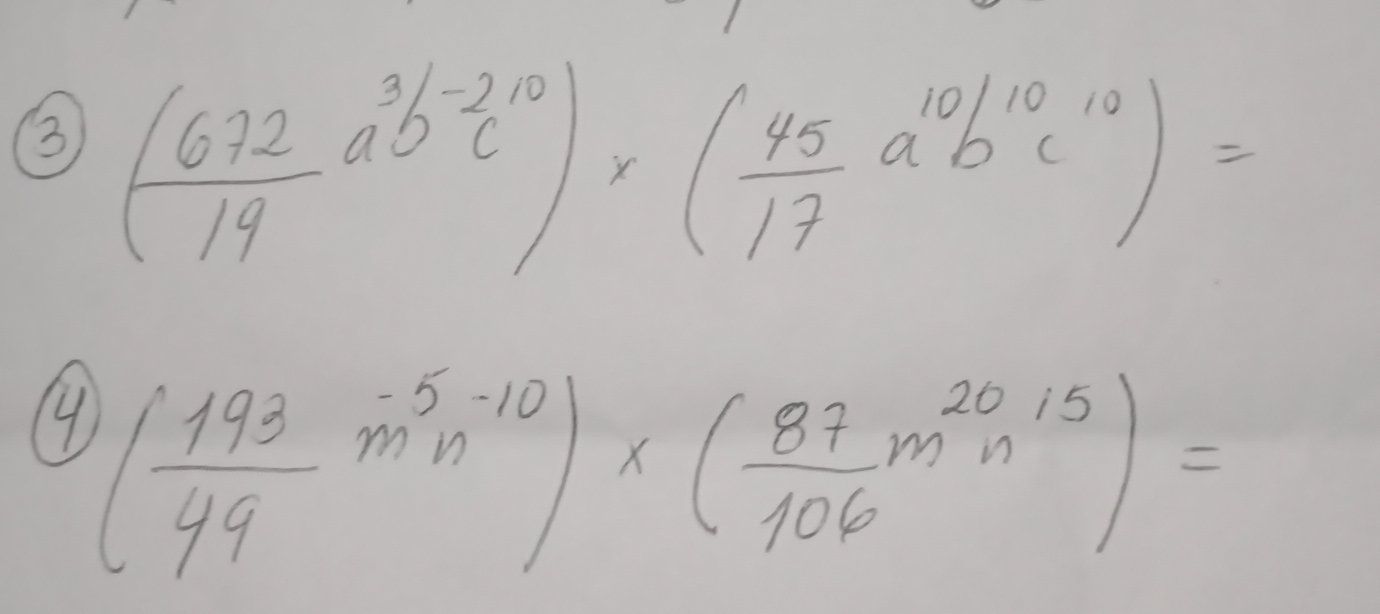 ③ (672/19 a³b⁻²c¹⁰) x (45/17 a¹⁰b¹⁰c¹⁰) =
④ (193/49 m⁻⁵n⁻¹⁰) x (87/106 m²⁰n¹⁵) =